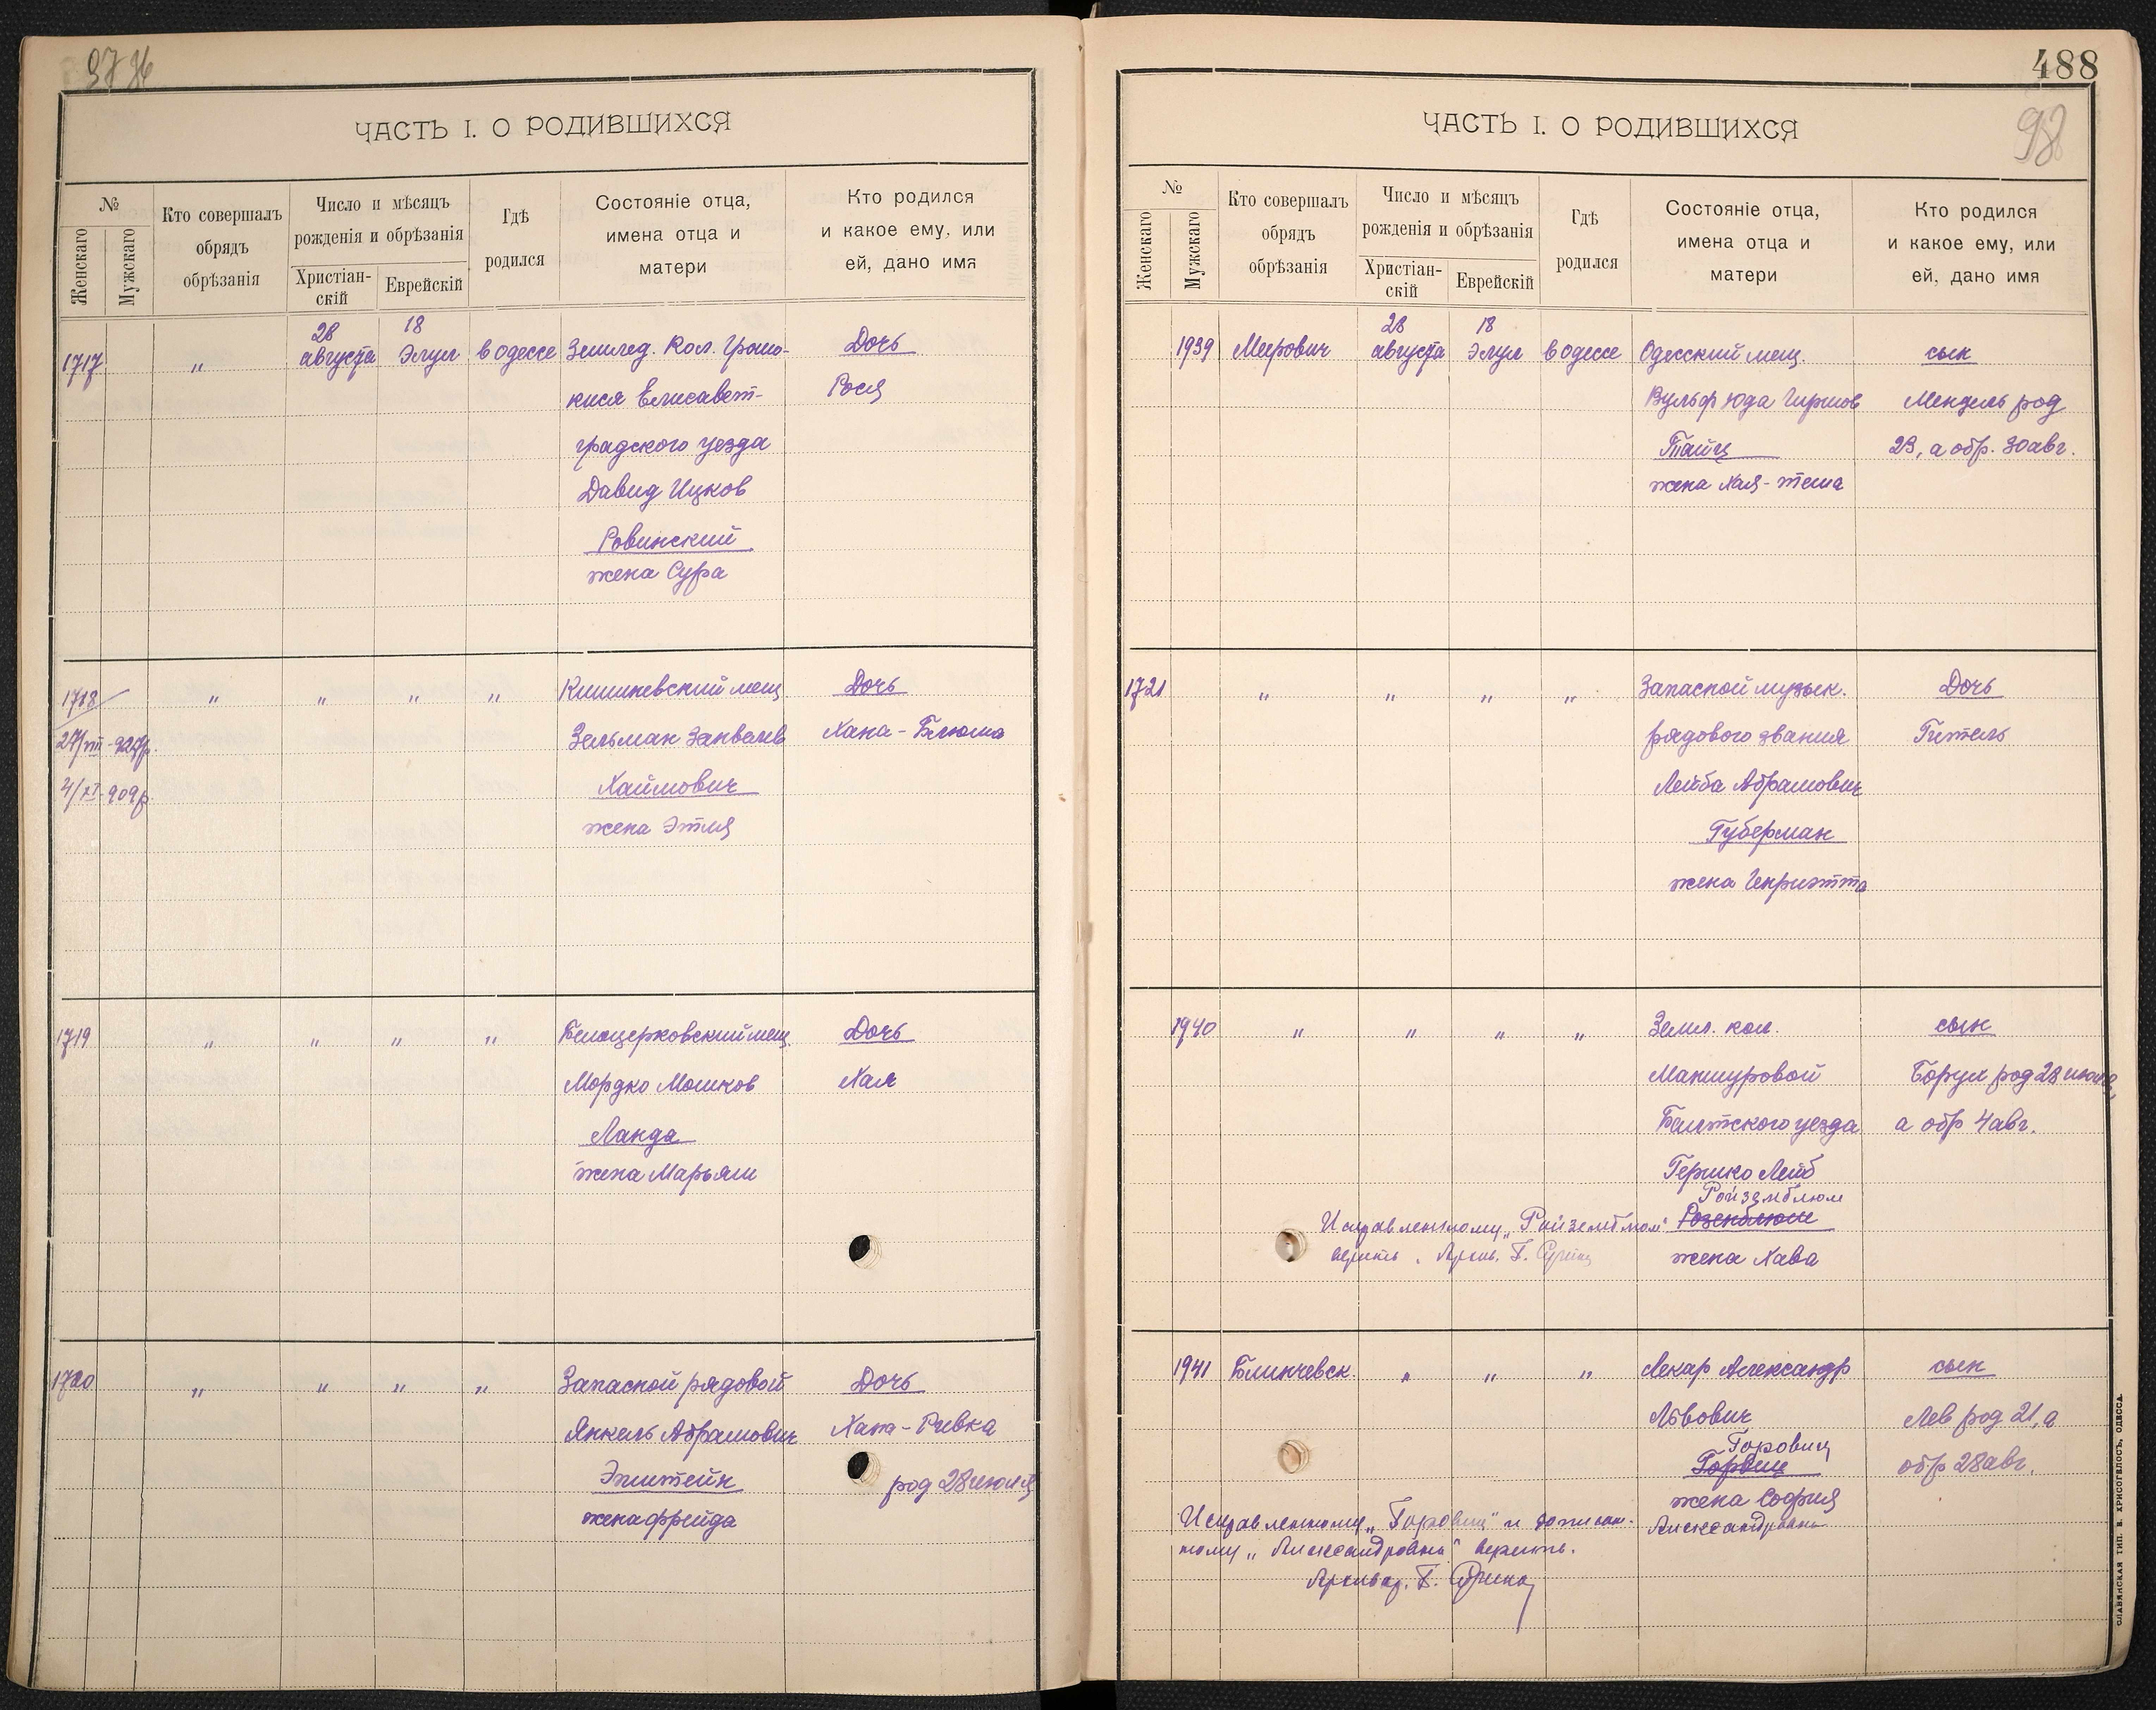 ЧАСТЬ I. О РОДИВШИХСЯ
№
Женскаго
Мужскаго
Кто совершалъ
обрядъ
обрѣзанія
Число и мѣсяцъ
рожденія и обрѣзанія
Христіан-
скій
Еврейскій
Гдѣ
родился
Состояніе отца,
имена отца и
матери
Кто родился
и какое ему, или
ей, дано имя
28 18
1717 " августа Элул в одессе Землед. Кол. Громо- Дочь
клея Елисавет- Рося
градского уезда
Давид Ицков
Ровинский
жена Сура
1718 " " " " Кишиневский мещ. Дочь
27/VIII-927р. Зельман Занвелев Хана-Блюма
4/XI-909р. Хаймович
жена Этля
1719 " " " " Белоцерковский мещ. Дочь
Мордко Мошков Хая
Ланда
жена Марьям
1720 " " " " Запасной рядовой Дочь
Янкель Абрамович Хана-Ривка
Эпштейн род 28 июля
жена фрейда
488
98
ЧАСТЬ I. О РОДИВШИХСЯ
№
Женскаго
Мужскаго
Кто совершалъ
обрядъ
обрѣзанія
Число и мѣсяцъ
рожденія и обрѣзанія
Христіан-
скій
Еврейскій
Гдѣ
родился
Состояніе отца,
имена отца и
матери
Кто родился
и какое ему, или
ей, дано имя
28 18
1939 Меерович августа Элул в одессе Одесский мещ. сын
Вульф Юда Гиршов Мендель род
Тайц 23, а обр. 30 авг.
жена Хая-теша
1721 " " " " Запасной музык. Дочь
рядового звания Гитель
Лейба Абрамович
Губерман
жена Генриэтта
1940 " " " " Земл. кол. сын
Манжуровой Борух род 28 июля,
Балтского уезда а обр 4 авг.
Гершко Лейб
Ройземблюм
Исправленному „Ройземблюм" Розенблюм
верить. Архив. Г. жена Хава
1941 Блинчевск. " " " Лекар Александр сын
Львович Лев род 21, а
Горовиц
Горвиц обр 28 авг.
жена София
Исправленному „Горовиц" и дописан- Александровна
ному „Александровна" верить.
Архивар. Г.
СЛАВЯНСКАЯ ТИП. В. ХРИСОГЕЛОСЪ, ОДЕССА.